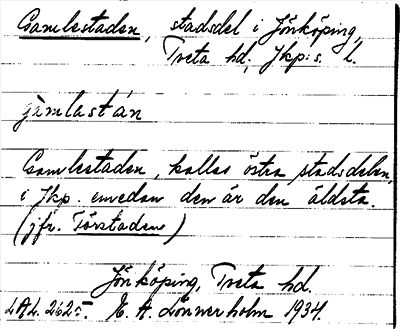 Gamlestaden, stadsdel i Jönköping,
Tveta hd, Jkp:s l.
gàmlastán
Gamlestaden, kallas östra stadsdelen
i Jkp. emedan den är den äldsta.
(jfr. Förstaden)
Jönköping, Tveta hd.
E. A. Lönnerholm 1934.